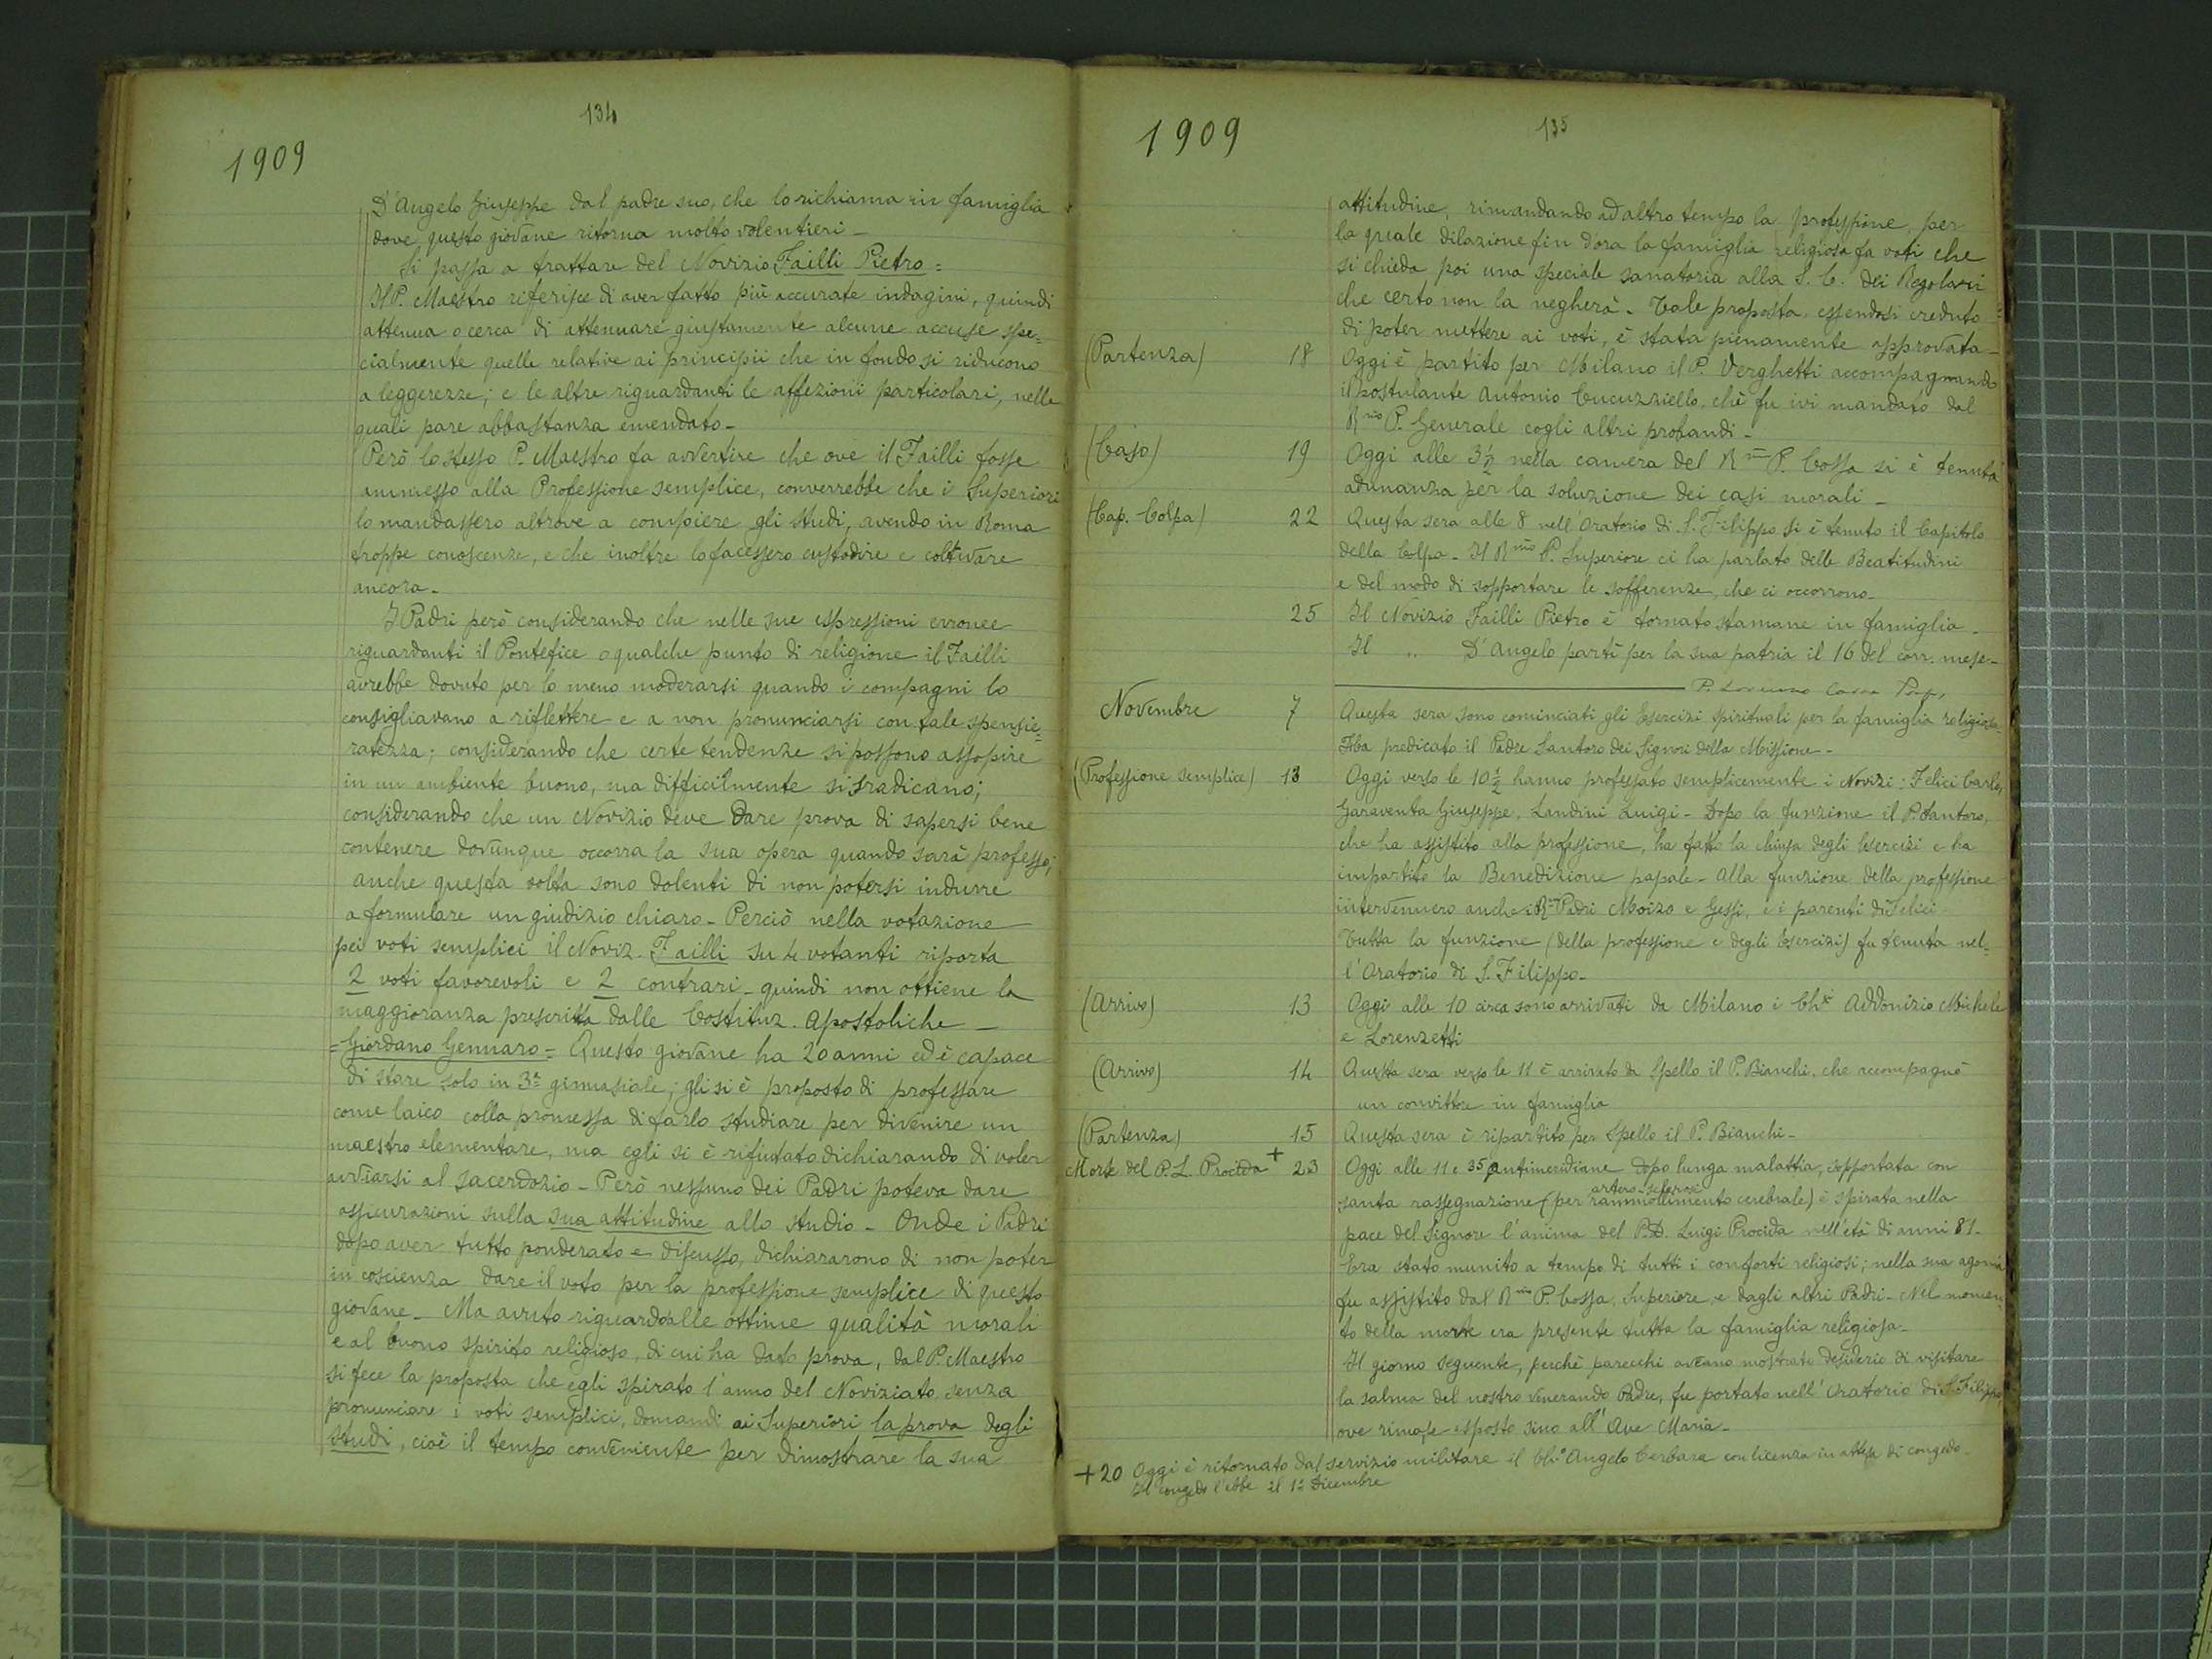 134
1909
D'Angelo Giuseppe dal padre suo, che lo richiama in famiglia
dove questo giovane ritorna molto volentieri_
Si passa a trattare del Novizio Failli Pietro=
Il P. Maestro riferisce di aver fatto più accurate indagini, quindi
attenua o cerca di attenuare giustamente alcune accuse spe=
cialmente quelle relative ai principii che in fondo si riducono
a leggerezze; e le altre riguardanti le affezioni particolari, nelle
quali pare abbastanza emendato_
Però lo stesso P. Maestro fa avvertire che ove il Failli fosse
ammesso alla Professione semplice, converrebbe che i Superiori
lo mandassero altrove a compiere gli studi, avendo in Roma
troppe conoscenze, e che inoltre lo facessero custodire e coltivare
ancora_
I Padri però considerando che nelle sue espressioni erronee
riguardanti il Pontefice o qualche punto di religione il Failli
avrebbe dovuto per lo meno moderarsi quando i compagni lo
consigliavano a riflettere e a non pronunciarsi con tale spensie=
ratezza; considerando che certe tendenze si possono assopire
in un ambiente buono, ma difficilmente si sradicano;
considerando che un Novizio deve dare prova di sapersi bene
contenere dovunque occorra la sua opera quando sarà professo;
anche questa volta sono dolenti di non potersi indurre
a formulare un giudizio chiaro_ Perciò nella votazione
pei voti semplici il Noviz. Failli su 4 votanti riporta
2 voti favorevoli e 2 contrari_ quindi non ottiene la
maggioranza prescritta dalle Costituz. Apostoliche_
=Giordano Gennaro= Questo giovane ha 20 anni ed è capace
di stare solo in 3ª ginnasiale; gli si è proposto di professare
come laico colla promessa di farlo studiare per divenire un
maestro elementare, ma egli si è rifiutato dichiarando di voler
avviarsi al sacerdozio_ Però nessuno dei Padri poteva dare
assicurazioni sulla sua attitudine allo studio_ Onde i Padri
dopo aver tutto ponderato e discusso, dichiararono di non poter
in coscienza dare il voto per la professione semplice di questo
giovane_ Ma avuto riguardo alle ottime qualità morali
e al buono spirito religioso, di cui ha dato prova, dal P. Maestro
si fece la proposta che egli spirato l'anno del Noviziato, senza
pronunciare i voti semplici, domandi ai Superiori la prova degli
studi, cioè il tempo conveniente per dimostrare la sua
1909
135
attitudine, rimandando ad altro tempo la professione, per
la quale dilazione fin d'ora la famiglia religiosa fa voti che
si chieda poi una speciale sanatoria alla S. C. dei Regolari
che certo non la negherà_ Tale proposta, essendosi creduto
di poter mettere ai voti, è stata pienamente approvata_
(Partenza) 18 Oggi è partito per Milano il P. Verghetti accompagnando
il postulante Antonio Cucuzziello, che fu ivi mandato dal
Rmo P. Generale cogli altri probandi_
(Caso) 19 Oggi alle 3 1/2 nella camera del Rmo P. Cossa si è tenuta
adunanza per la soluzione dei casi morali_
(Cap. Colpa) 22 Questa sera alle 8 nell'Oratorio di S. Filippo si è tenuto il Capitolo
della Colpa_ Il Rmo P. Superiore ci ha parlato delle Beatitudini
e del modo di sopportare le sofferenze, che ci occorrono_
25 Il Novizio Failli Pietro è tornato stamane in famiglia_
Il „ D'Angelo partì per la sua patria il 16 del corr. mese_
Novembre 7 Questa sera sono cominciati gli Esercizi spirituali per la famiglia religiosa_
Ha predicato il Padre Santoro dei Signori della Missione_
(Professione semplice) 13 Oggi verso le 10 1/2 hanno professato semplicemente i Novizi: Felici Carlo,
Garaventa Giuseppe, Landini Luigi_ Dopo la funzione il P. Santoro,
che ha assistito alla professione, ha fatto la chiusa degli Esercizi e ha
impartito la Benedizione papale_ Alla funzione della professione
intervennero anche i Rmi Padri Moizo e Gessi, e i parenti di Felici_
Tutta la funzione (della professione e degli Esercizi) fu tenuta nel=
l'Oratorio di S. Filippo_
(Arrivo) 13 Oggi alle 10 circa sono arrivati da Milano i Chci Addonizio Michele
e Lorenzetti
(Arrivo) 14 Questa sera verso le 11 è arrivato da Spello il P. Bianchi, che accompagnò
un convittore in famiglia
(Partenza) 15 Questa sera è ripartito per Spello il P. Bianchi_
+
Morte del P. L. Procida 23 Oggi alle 11 e 35 antimeridiane dopo lunga malattia, sopportata con
artero-sclerosi
santa rassegnazione (per rammollimento cerebrale) è spirata nella
pace del Signore l'anima del P. D. Luigi Procida nell'età di anni 81_
Era stato munito a tempo di tutti i conforti religiosi; nella sua agonia
fu assistito dal Rmo P. Cossa, Superiore, e dagli altri Padri_ Nel momen=
to della morte era presente tutta la famiglia religiosa_
Il giorno seguente, perchè parecchi aveano mostrato desiderio di visitare
la salma del nostro venerando Padre, fu portato nell'Oratorio di S. Filippo
ove rimase esposto sino all'Ave Maria_
+20 Oggi è ritornato dal servizio militare il Chco Angelo Cerbara con licenza in attesa di congedo_
Il congedo l'ebbe il 1º Dicembre